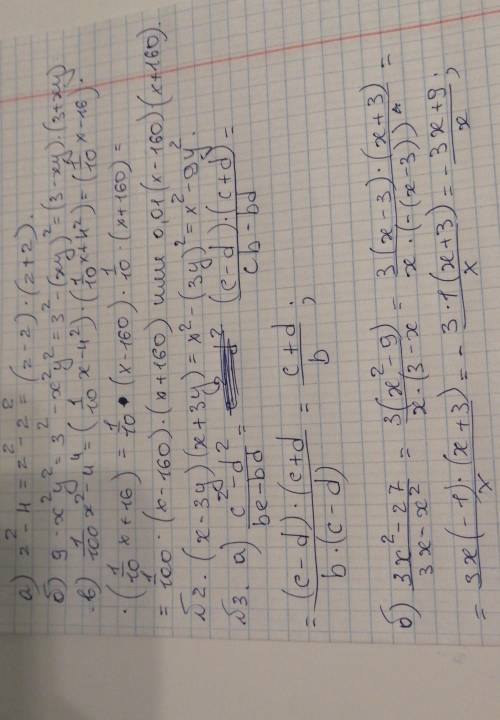 а) z² - 4 = z² - 2² = (z - 2) · (z + 2).
б) 9 - x²y² = 3² - x²y² = 3² - (xy)² = (3 - xy) · (3 + xy)
в) 1/100 x² - 4⁴ = (1/10 x - 4²) · (1/10 x + 4²) = (1/10 x - 16) ·
· (1/10 x + 16) = 1/10 · (x - 160) · 1/10 (x + 160) =
= 1/100 · (x - 160) · (x + 160) или 0,01 (x - 160) (x + 160).
№2. (x - 3y)(x + 3y) = x² - (3y)² = x² - 9y².
№3. а) (c² - d²)/(bc - bd) = ((c - d) · (c + d))/(cb - bd) =
= ((c - d) · (c + d))/(b · (c - d)) = (c + d)/b ;
б) (3x² - 27)/(3x - x²) = (3(x² - 9))/(x · (3 - x)) = (3(x - 3) · (x + 3))/(x · (-(x - 3))) =
= (3x(-1) · (x + 3))/x = - (3 · 1(x + 3))/x = - (3x + 9)/x ;